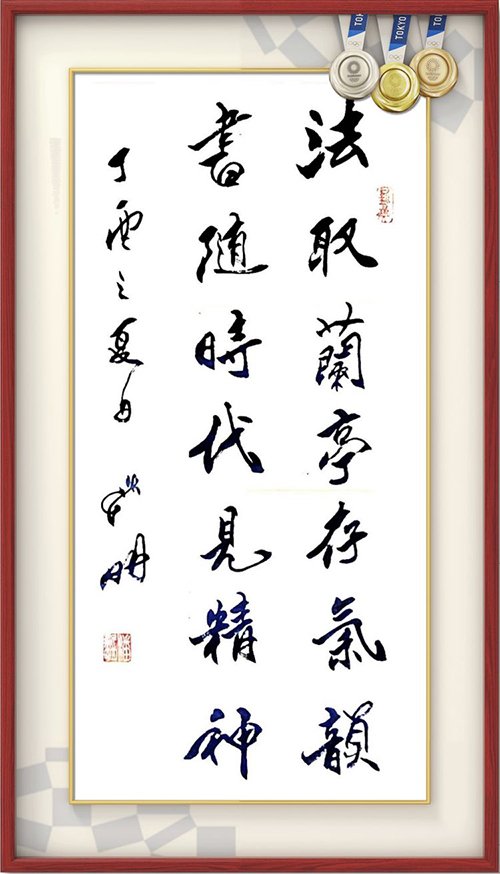 法取蘭亭存氣韻
書隨時代見精神
丁酉之夏月
TOKYO
TOKYO
TOKYO